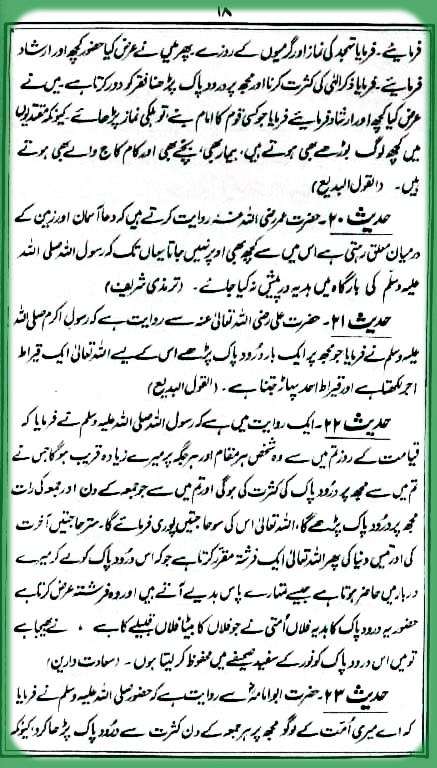 ۱۸
فرمایئے۔ فرمایا تہجد کی نماز اور گرمیوں کے روزے۔ پھر میں نے عرض کیا حضور کچھ اور ارشاد
فرمایئے۔ فرمایا ذکر الٰہی کی کثرت کرنا اور مجھ پر درود پاک پڑھنا فقر کو دور کرتا ہے۔ میں نے
عرض کیا کچھ اور ارشاد فرمایئے فرمایا جو کسی قوم کا امام بنے تو ہلکی نماز پڑھائے۔ کیونکہ مقتدیوں
میں کچھ لوگ بوڑھے بھی ہوتے ہیں، بیمار بھی، بچے بھی اور کام کاج والے بھی ہوتے
ہیں۔ (القول البدیع)
حدیث ۲۰۔ حضرت عمر رضی اللہ عنہ روایت کرتے ہیں کہ دعا آسمان اور زمین کے
درمیان معلق رہتی ہے اس میں سے کچھ بھی اوپر نہیں جاتا یہاں تک کہ رسول اللہ صلی اللہ
علیہ وسلم کی بارگاہ میں ہدیہ درود پیش نہ کیا جائے۔ (ترمذی شریف)
حدیث ۲۱۔ حضرت علی رضی اللہ تعالیٰ عنہ سے روایت ہے کہ رسول اکرم صلی اللہ
علیہ وسلم نے فرمایا جو مجھ پر ایک بار درود پاک پڑھے اس کے لیے اللہ تعالیٰ ایک قیراط
اجر لکھتا ہے اور قیراط احد پہاڑ جتنا ہے۔ (القول البدیع)
حدیث ۲۲۔ ایک روایت میں ہے کہ رسول اللہ صلی اللہ علیہ وسلم نے فرمایا کہ
قیامت کے روز تم میں سے وہ شخص ہر مقام اور ہر جگہ پر میرے زیادہ قریب ہوگا جس نے
تم میں سے مجھ پر درود پاک کی کثرت کی ہوگی اور تم میں سے جو جمعہ کے دن اور جمعہ کی رات
مجھ پر درود پاک پڑھے گا، اللہ تعالیٰ اس کی سو حاجتیں پوری فرمائے گا۔ ستر حاجتیں آخرت
کی اور تیس دنیا کی پھر اللہ تعالیٰ ایک فرشتہ مقرر کرتا ہے جو کہ اس درود پاک کو لے کر میرے
دربار میں حاضر ہوتا ہے جیسے تمہارے پاس ہدیے آتے ہیں اور وہ فرشتہ عرض کرتا ہے
حضور یہ درود پاک کا ہدیہ فلاں امتی نے جو فلاں کا بیٹا فلاں قبیلے کا ہے، نے بھیجا ہے
تو میں اس درود پاک کو نور کے سفید صحیفے میں محفوظ کر لیتا ہوں۔ (سعادت دارین)
حدیث ۲۳۔ حضرت ابو امامہؓ سے روایت ہے کہ حضور صلی اللہ علیہ وسلم نے فرمایا
کہ اے میری امت کے لوگو مجھ پر ہر جمعہ کے دن کثرت سے درود پاک پڑھا کرو، کیونکہ